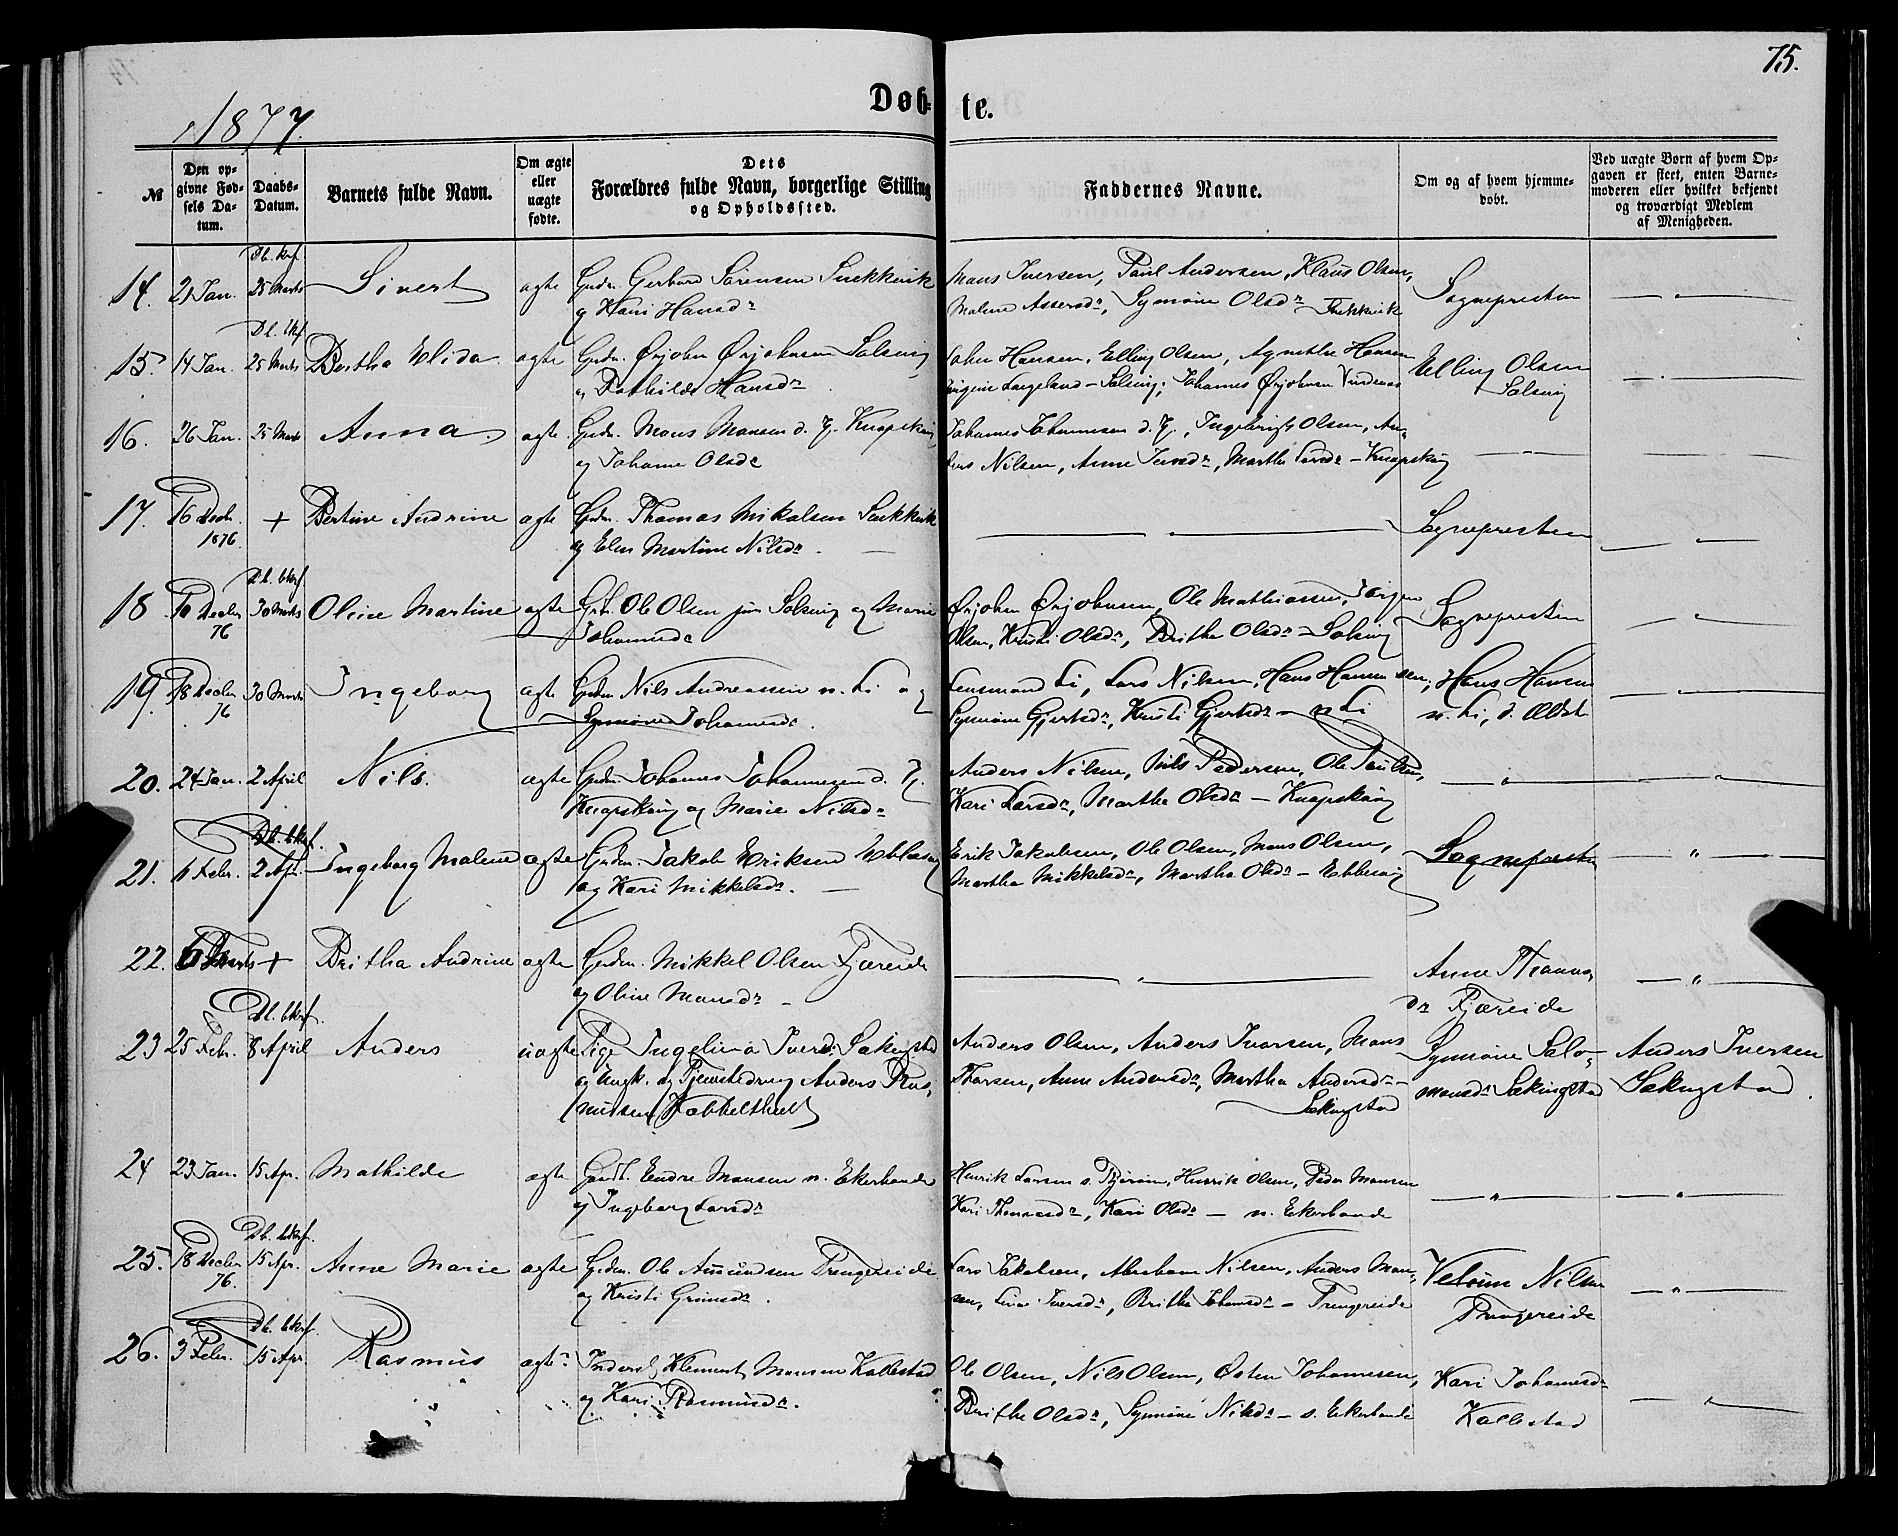 75.
1877.
Døb- te.
№
Den op-
givne Fød-
sels Da-
tum.
Daabs-
Datum.
Barnets fulde Navn.
Om ægte
eller
uægte
fødte.
Dets
Forældres fulde Navn, borgerlige Stilling
og Opholdssted.
Faddernes Navne.
Om og af hvem hjemme-
døbt.
Ved uægte Børn af hvem Op-
gaven er skeet, enten Barne-
moderen eller hvilket bekjendt
og troværdigt Medlem
af Menigheden.
Db. bkrf.
14. 21 Jan. 25 Marts Sivert ægte Grdm. Gerhard Sørensen
og Kari Hansdr
Mons Iversen, Paul Andersen, Klaus Olsen,
Malene Assersdr, Synnøve Olsdr
Sognepresten
Db. bkrf.
15. 14 Jan. 25 Marts Bertha Elida ægte Grdm. Ørjohn Ørjohnsen Solsvig
og Bothilde Hansdr
Hansen, Elling Olsen, Agnethe Hansen
Solsvig, Johannes Ørjohnsen Vindenes
Elling Olsen
Solsvig
16. 26 Jan. 25 Marts Anna ægte Grdm. Mons Monsen d. y. Knapskaug
og Johanne Olsdr
Johannes Johannessen d. y., Ingebrigt Olsen, An-
ders Nilsen, Anne Iversdr, Martha Larsdr – Knapskaug
17. 16 Decbr. + Bertine Andrine ægte Grdm. Thomas Mikalsen
1876.
og Elen Martine Nilsdr.
Sognepresten
Db. bkrf.
18 10 Decbr 30 Marts Oline Martine ægte Grdm. Ole Olsen jun Solsvig og Marie
76
Johannesdr
Ørjohn Ørjohnsen, Ole Mathiassen, Jørgen
Olsen, Kristi Olsdr, Britha Olsdr – Solsvig
Sognepresten
19. 18 Decbr 30 Marts Ingeborg ægte Grdm Nils Andreassen n. Li og
76
Synnøve Johannesdr.
Lensmand Li, Lars Nilsen, Hans Hansen
Synnøve Gjertsdr, Kristi Gjertsdr – n Li
Hans Hansen
n. Li, d. Ældst
20. 24 Jan. 2 April Nils. ægte Grdm Johannes Johannessen d. y.
Knapskaug og Marie Nilsdr
Anders Nilsen, Nils Pedersen, Ole Paulsen,
Kari Larsdr, Martha Olsdr – Knapskaug
Db. bkrf.
21. 6 Febr. 2 Apr. Ingeborg Malene ægte Grdm. Jakob Eriksen Ebbesvig
og Kari Mikkelsdr.
Erik Jakobsen, Ole Olsen, Mons Olsen,
Martha Mikkelsdr, Martha Olsdr – Ebbesvig
Sognepresten
22. 6 Marts + Britha Andrine ægte Grdm. Mikkel Olsen Fjæreide
og Oline Monsdr
Anne Thomas-
dr Fjæreide
Db. bkrf.
23 25 Febr. 8 April Anders uægte Pige Ingelina Iversdr. Sækingstad
og Ungk. og Tjenestedreng Anders Ras-
mussen Kobbeltveit
Anders Olsen, Anders Ivarsen, Mons
Thorsen, Anne Andersdr, Martha Andersdr –
Sækingstad
Synnøve Salo-
monsdr Sækingstad
Anders Iversen
Sækingstad.
24 23 Jan. 15 Apr. Mathilde ægte Endre Monsen n. Ekerhovde
og Ingeborg Larsdr
Henrik Larsen s. Bjorøen, Henrik Olsen, Peder Monsen
Kari Thomasdr, Kari Olsdr – n. Ekerhovde
Db. bkrf.
25. 18 Decbr 15 Apr. Anne Marie ægte Grdm. Ole Amundsen Trengereide
76.
og Kristi Grimsdr.
Lars Jakobsen, Abraham Nilsen, Anders Mon-
sen, Iversdr, Britha Johansdr – Trengereide
Nilsen
Trengereide
Db. bkrf.
26. 3 Febr. 15 Apr. Rasmus ægte Inderst Klement Monsen Kallestad
og Kari Rasmusdr.
Ole Olsen, Nils Olsen, Østen Johannesen,
Brithe Olsdr, Synnøve Nilsdr – s. Ekerhovde
Kari Johannesdr
Kallestad